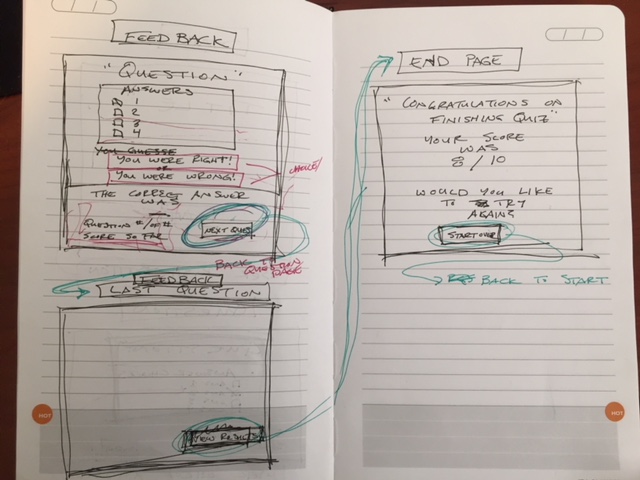 FEEDBACK
"QUESTION"
ANSWERS
1
2
3
4
YOU GUESSE
YOU WERE RIGHT!
OR
YOU WERE WRONG!
CHOICE/
THE CORRECT ANSWER
WAS
QUESTION "#/OF #"
SCORE SO FAR
NEXT QUES
BACK TO
QUESTION
PAGE
FEEDBACK
LAST QUESTION
VIEW RESULTS
HOT
END PAGE
"CONGRATULATIONS ON
FINISHING QUIZ"
YOUR SCORE
WAS
8/10
WOULD YOU LIKE
TO TRY
AGAIN?
START OVER
BACK TO START
HOT